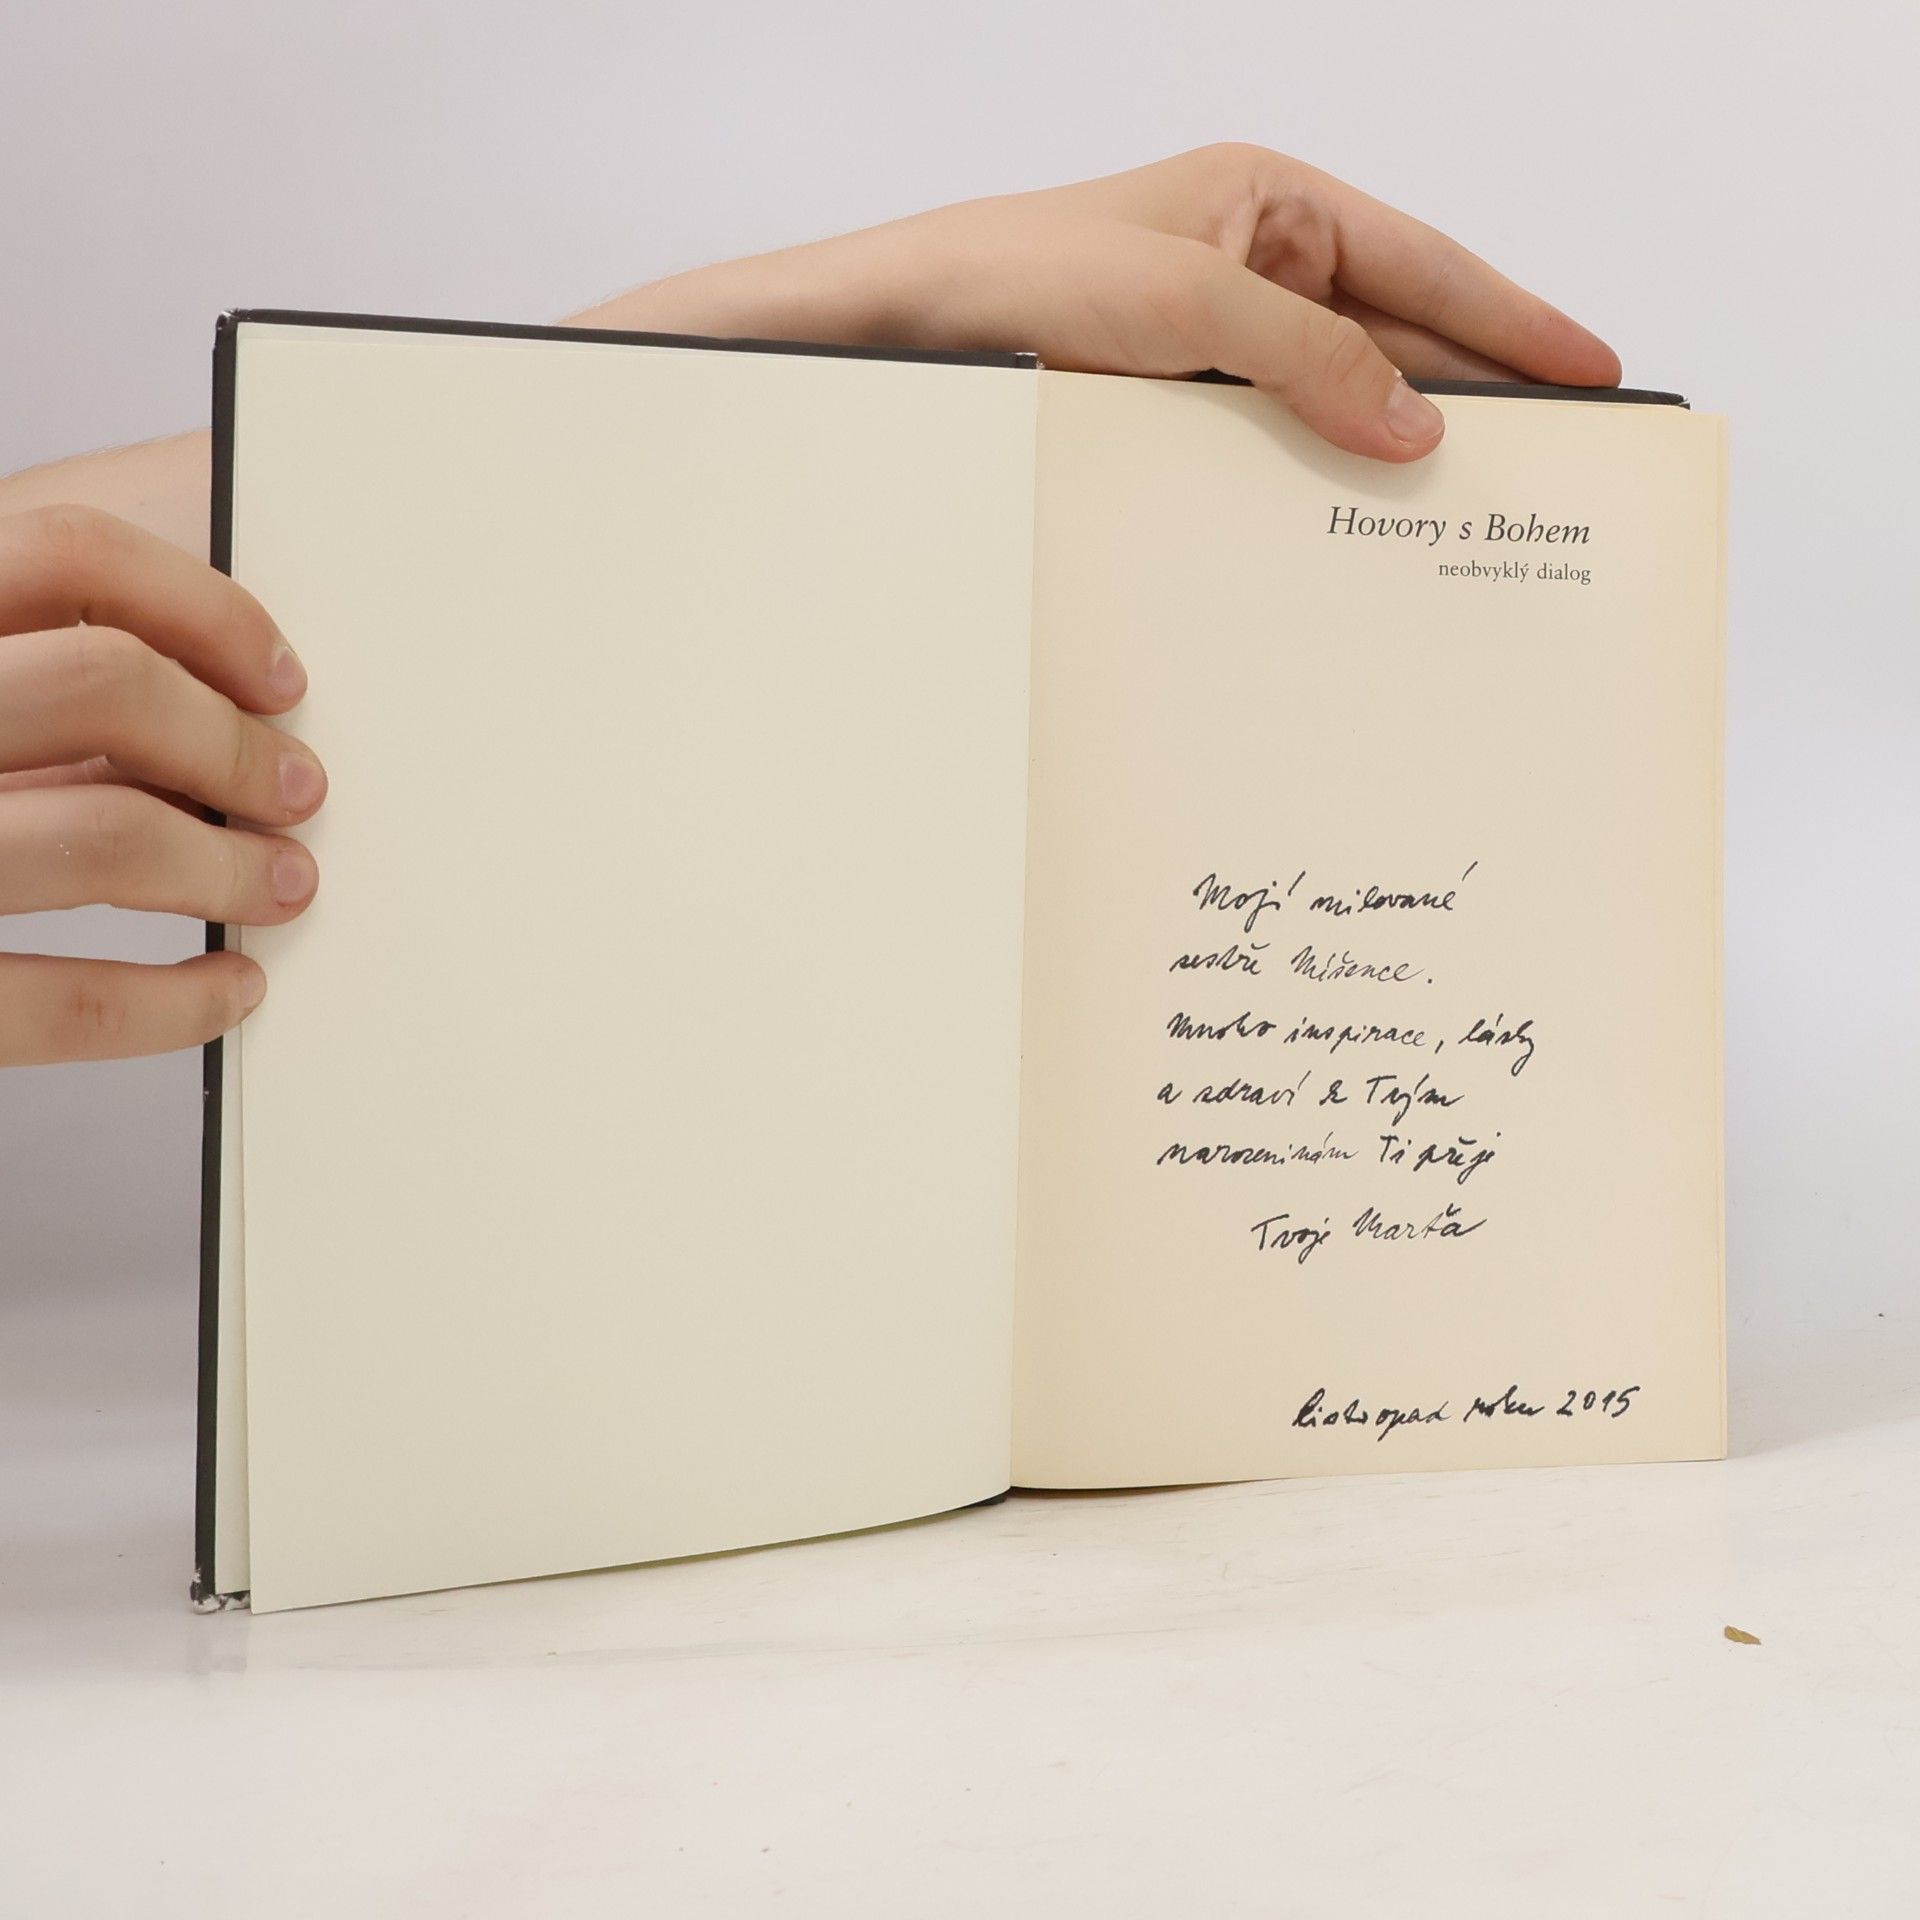 Hovory s Bohem
neobvyklý dialog
Mojí milované
sestře Míšence.
Mnoho inspirace, lásky
a zdraví k Tvým
narozeninám Ti přeje
Tvoje Marťa
listopad roku 2015